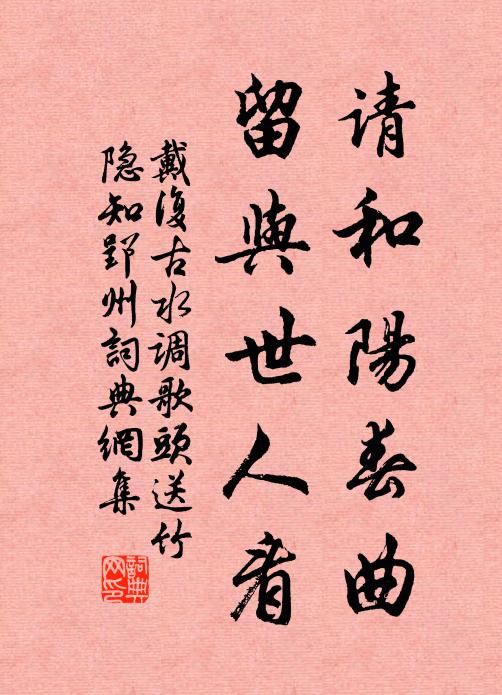 请和陽春曲
留與世人看
戴復古水调歌頭送竹
隐知郢州詞典網集
詞典网印